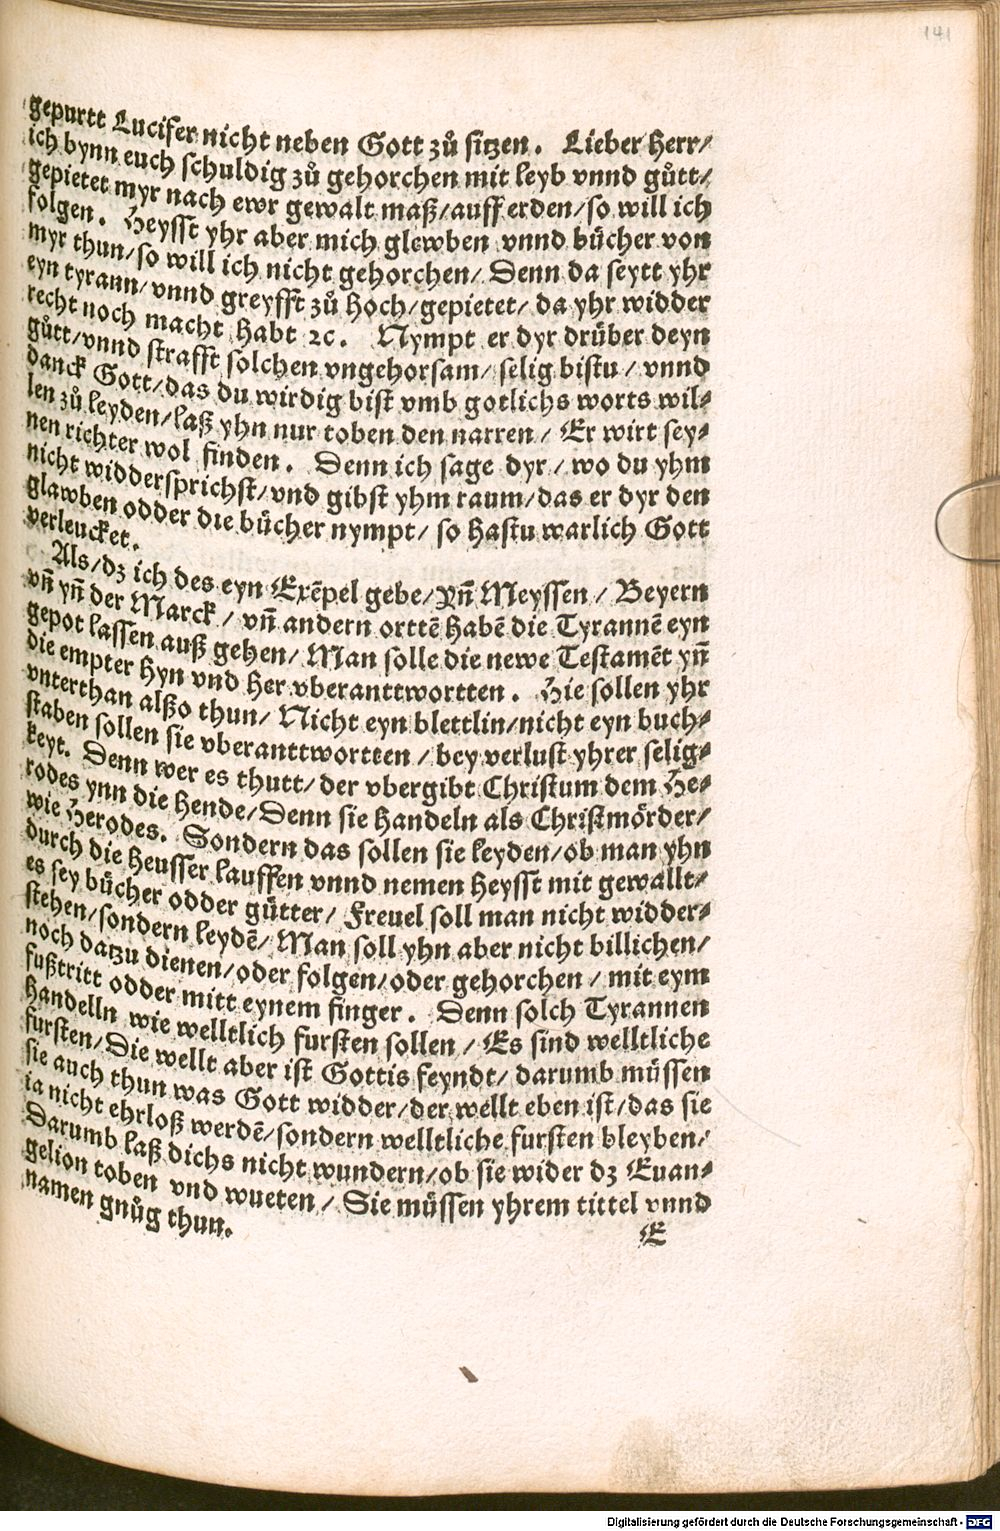 141
gepurtt Lucifer nicht neben Gott zů sitzen. Lieber Herr/
ich bynn euch schuldig zů gehorchen mit leyb vnnd gůtt/
gepietet myr nach ewr gewalt maß/auff erden/so will ich
folgen. Heysst yhr aber mich glewben vnnd bücher von
myr thun/so will ich nicht gehorchen/ Denn da seytt yhr
eyn tyrann/vnnd greyfft zů hoch/gepietet/ da yhr widder
recht noch macht habt ꝛc. Nympt er dyr drüber deyn
gůtt/vnnd strafft solchen vngehorsam/ selig bistu / vnnd
danck Gott/das du wirdig bist vmb gotlichs worts wil⸗
len zů leyden/laß yhn nur toben den narren / Er wirt sey⸗
nen richter wol finden. Denn ich sage dyr / wo du yhm
nicht widdersprichst/vnd gibst yhm raum/das er dyr den
glawben odder die bücher nympt/ so hastu warlich Gott
verleucket.
Als/dz ich des eyn Exēpel gebe/Yñ Meyssen / Beyern
vñ yñ der Marck / vñ andern orttē habē die Tyrannē eyn
gepot lassen auß gehen/ Man solle die newe Testamēt yñ
die empter hyn vnd her vberanttwortten. Hie sollen yhr
vnterthan alßo thun/ Nicht eyn blettlin/nicht eyn buch⸗
staben sollen sie vberanttwortten / bey verlust yhrer selig⸗
keyt. Denn wer es thutt/ der vbergibt Christum dem He⸗
rodes ynn die hende/Denn sie handeln als Christmörder/
wie Herodes. Sondern das sollen sie leyden/ob man yhn
durch die heusser lauffen vnnd nemen heysst mit gewallt/
es sey bücher odder gütter/ Freuel soll man nicht widder⸗
stehen/sondern leydē/ Man soll yhn aber nicht billichen/
noch datzu dienen/oder folgen/oder gehorchen / mit eym
fußtritt odder mitt eynem finger. Denn solch Tyrannen
handelln wie welltlich fursten sollen / Es sind welltliche
fursten/Die wellt aber ist Gottis feyndt/ darumb müssen
sie auch thun was Gott widder/der wellt eben ist/das sie
ia nicht ehrloß werdē/sondern welltliche fursten bleyben/
Darumb laß dichs nicht wundern/ob sie wider dz Euan⸗
gelion toben vnd wueten / Sie müssen yhrem tittel vnnd
namen gnůg thun.
E
Digitalisierung gefördert durch die Deutsche Forschungsgemeinschaft - DFG